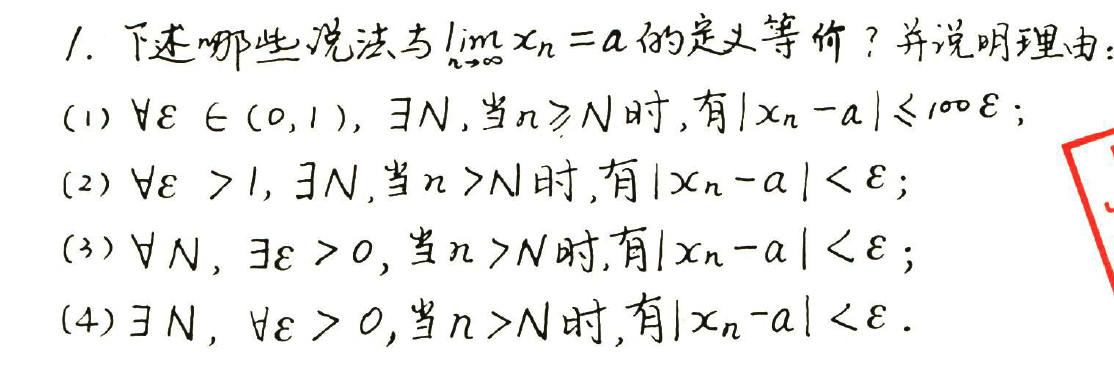 1. 下述哪些说法与 lim_{n→∞} xₙ = a 的定义等价？并说明理由：
(1) ∀ε ∈ (0,1), ∃N, 当n≥N时,有|xₙ-a|≤100ε;
(2) ∀ε >1, ∃N,当n>N时,有|xₙ-a|<ε;
(3) ∀N, ∃ε>0,当n>N时,有|xₙ-a|<ε;
(4) ∃N, ∀ε>0,当n>N时,有|xₙ-a|<ε.